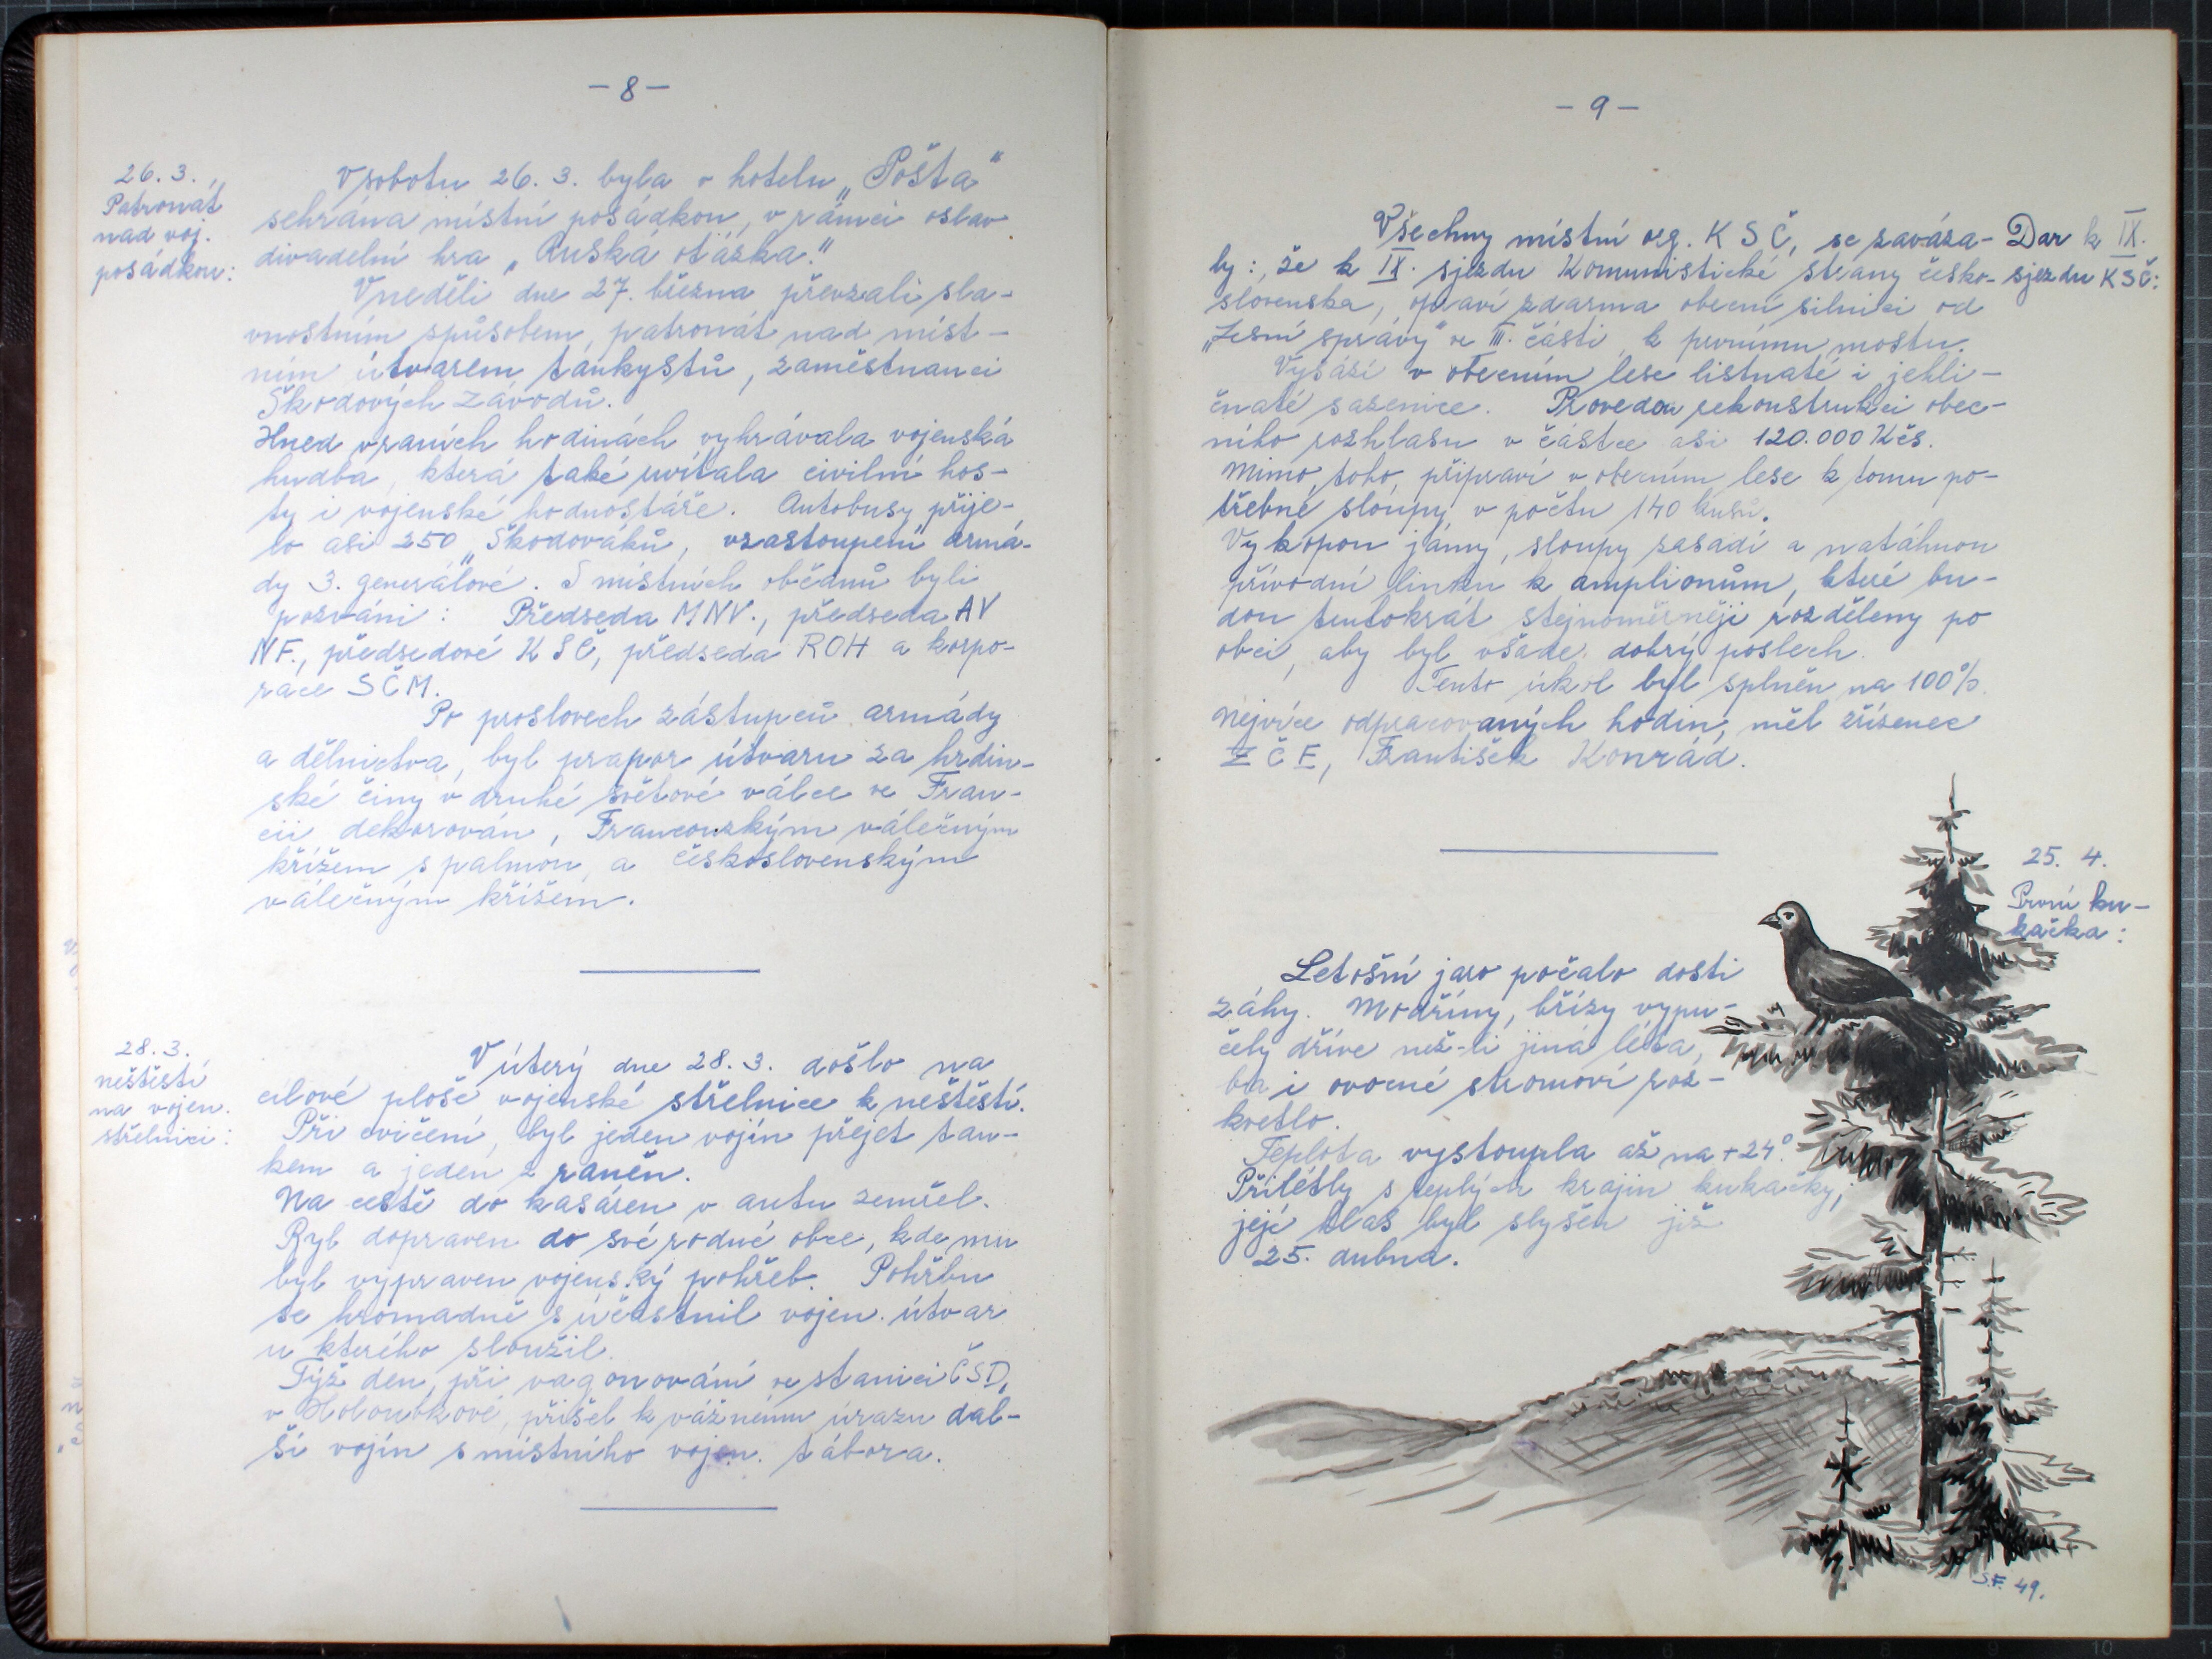 - 8 -
26. 3.
Patronát
nad voj.
posádkou:
V sobotu 26. 3. byla v hotelu „Pošta“
sehrána místní posádkou, v rámci oslav
divadelní hra „Ruská otázka.“
V neděli dne 27. března převzali sla-
vnostním způsobem, patronát nad míst-
ním útvarem tankystů, zaměstnanci
Škodových závodů.
Hned v raních hodinách vyhrávala vojenská
hudba, která také uvítala civilní hos-
ty i vojenské hodnostáře. Autobusy přije-
lo asi 250 „Škodováků, v zastoupení armá-
dy 3. generálové. S místních občanů byli
pozváni: Předseda MNV., předseda AV
NF., předsedové KSČ, předseda ROH a korpo-
race SČM.
Po proslovech zástupců armády
a dělnictva, byl prapor útvaru za hrdin-
ské činy v druhé světové válce ve Fran-
cii dekorován, Francouzským válečným
křížem s palmou, a československým
válečným křížem.
28. 3.
neštěstí
na vojen.
střelnici:
V úterý dne 28. 3. došlo na
cílové ploše vojenské střelnice k neštěstí.
Při cvičení, byl jeden vojín přejet tan-
kem a jeden z raněn.
Na cestě do kasáren v autu zemřel.
Byl dopraven do své rodné obce, kde mu
byl vypraven vojenský pohřeb. Pohřbu
se hromadně súčastnil vojen. útvar
u kterého sloužil.
Týž den, při vagonování ve stanici ČSD,
v Holoubkově, přišel k vážnému úrazu dal-
ší vojín s místního vojen. tábora.
- 9 -
Všechny místní org. KSČ, se zaváza-
Dar k IX.
sjezdu KSČ:
ly:, že k IX. sjezdu Komunistické strany česko-
slovenska, opraví zdarma obecní silnici od
„Lesní správy“ ve III. části, k prvnímu mostu.
Vysází v obecním lese listnaté i jehli-
čnaté sazenice. Provedou rekonstrukci obec-
ního rozhlasu v částce asi 120.000 Kčs.
Mimo toho, připraví v obecním lese k tomu po-
třebné sloupy v počtu 140 kusů.
Vykopou jámy, sloupy zasadí a natáhnou
přívodní linku k amplionům, které bu-
dou tentokrát stejnoměrněji rozděleny po
obci, aby byl všade dobrý poslech.
Tento úkol byl splněn na 100%.
Nejvíce odpracovaných hodin, měl zřízenec
ZČE, František Konrád.
25. 4.
První ku-
kačka:
Letošní jaro počalo dosti
záhy. Modříny, břízy vypu-
čely dříve než-li jiná léta,
ba i ovocné stromoví roz-
kvetlo.
Teplota vystoupla až na +24°.
Přilétly s teplých krajin kukačky,
jejé hlas byl slyšen již
25. dubna.
S.F. 49.